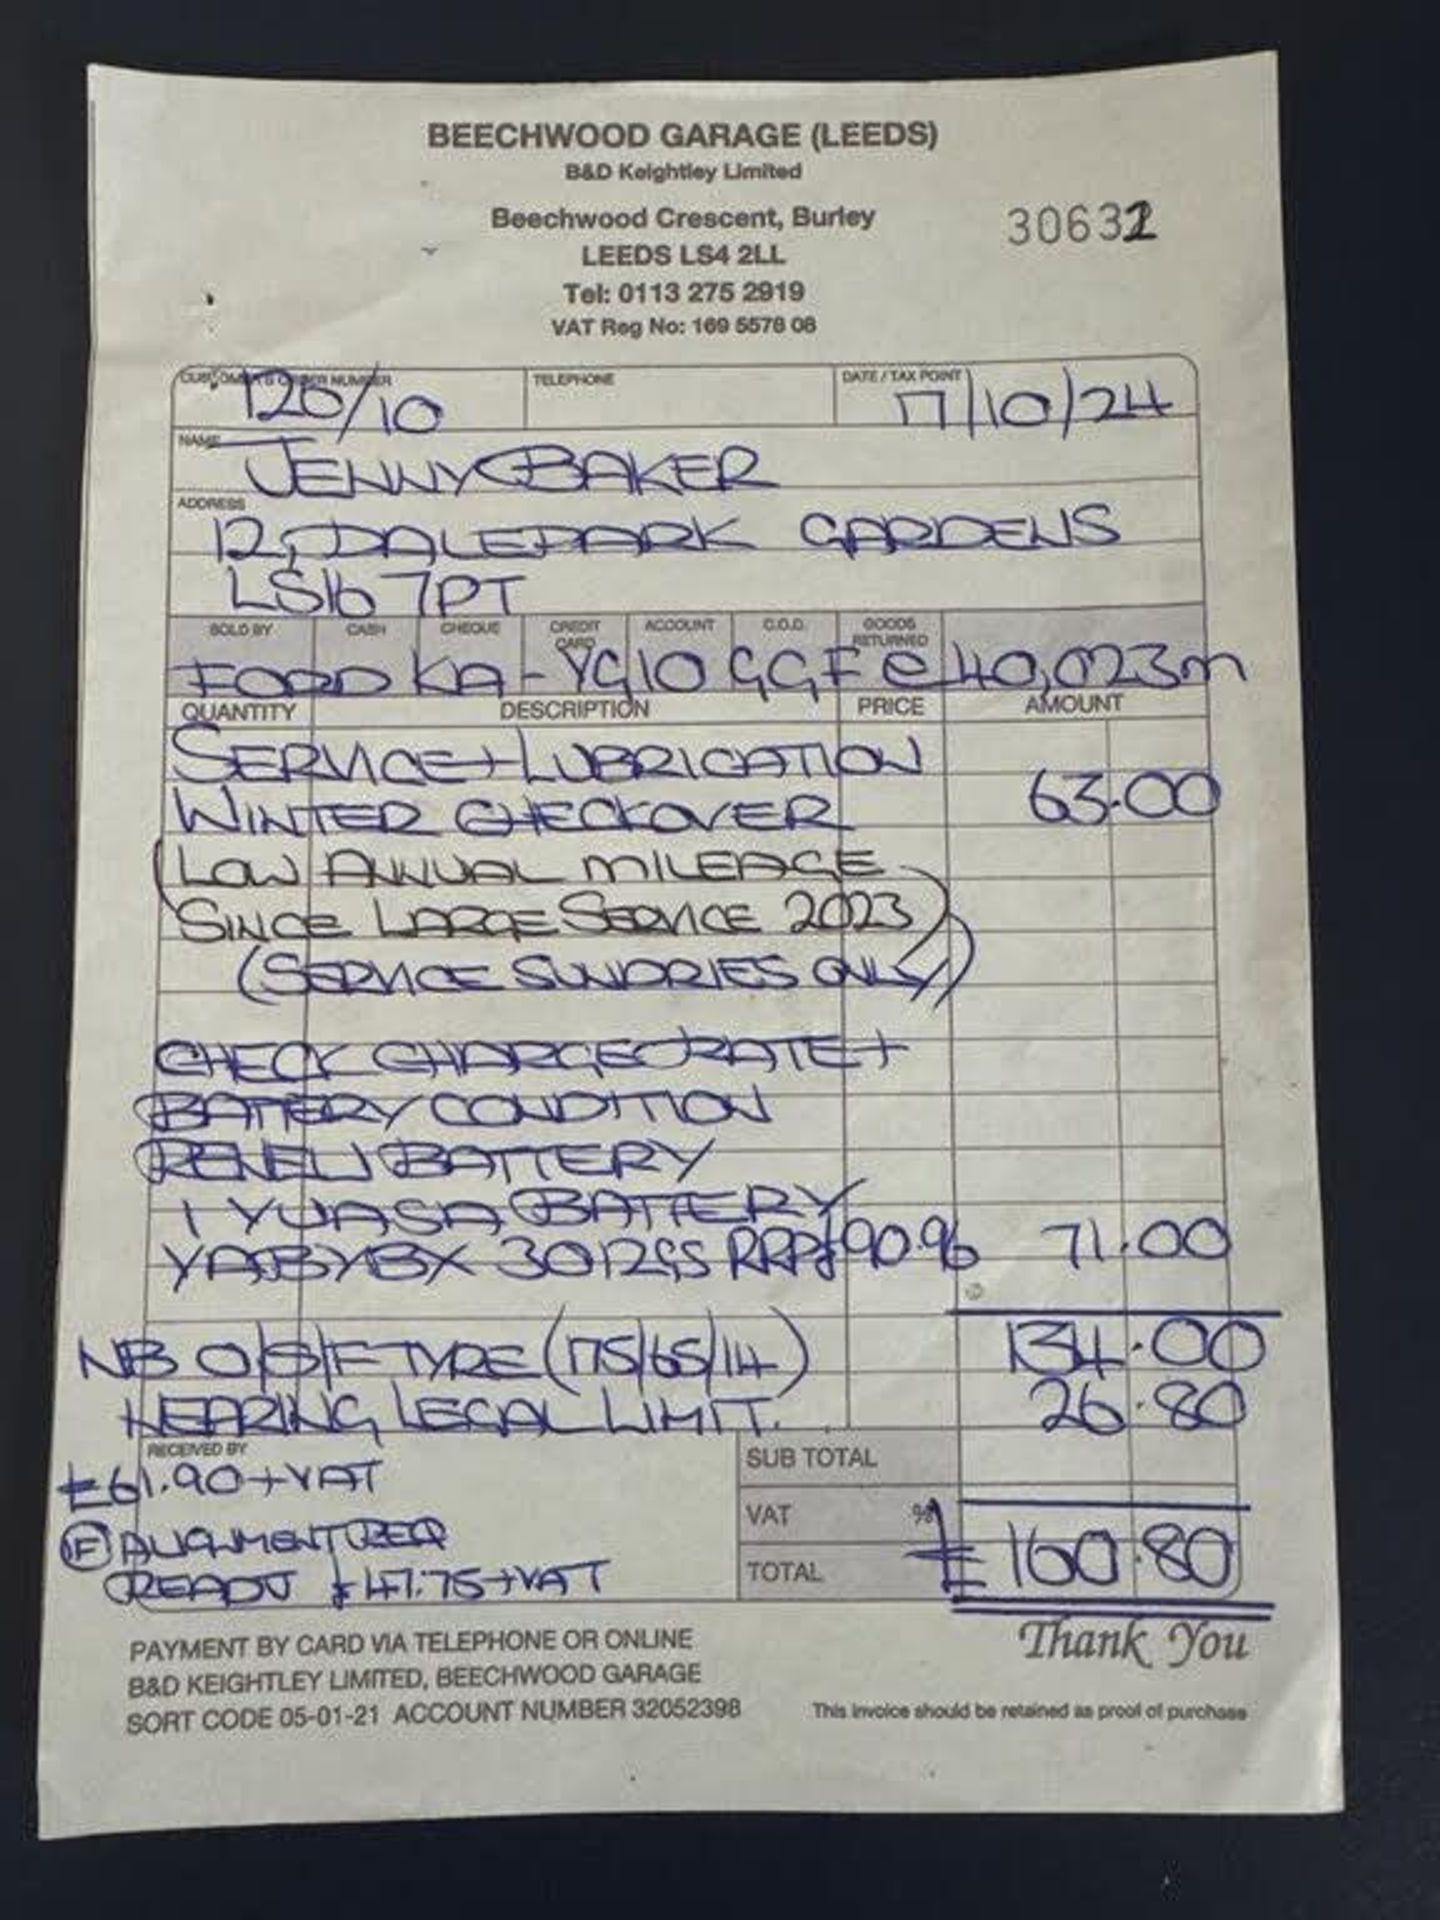 BEECHWOOD GARAGE (LEEDS)
B&D Keightley Limited
Beechwood Crescent, Burley
LEEDS LS4 2LL
Tel: 0113 275 2919
VAT Reg No: 169 5578 08
CUSTOMER'S ORDER NUMBER TELEPHONE DATE / TAX POINT
120/10 17/10/24
NAME
JENNY BAKER
ADDRESS
12, DALEPARK GARDENS
LS16 7PT
SOLD BY CASH CHEQUE CREDIT CARD ACCOUNT C.O.D. GOODS RETURNED
FORD KA - YG10 GGF @ 40,023m
QUANTITY DESCRIPTION PRICE AMOUNT
SERVICE + LUBRICATION
WINTER CHECKOVER 63.00
(LOW ANNUAL MILEAGE
SINCE LARGE SERVICE 2023)
(SERVICE SUNDRIES ONLY)
CHECK CHARGE RATE +
BATTERY CONDITION
RENEW BATTERY
1 YUASA BATTERY
RRP £90.96 71.00
134.00
NB O/S/F TYRE (175/65/14)
NEARING LEGAL LIMIT. 26.80
RECEIVED BY
£61.90 + VAT
SUB TOTAL
VAT %
(F) ALIGNMENT REQ
READJ £47.75 + VAT
TOTAL £160.80
Thank You
PAYMENT BY CARD VIA TELEPHONE OR ONLINE
B&D KEIGHTLEY LIMITED, BEECHWOOD GARAGE
SORT CODE 05-01-21 ACCOUNT NUMBER 32052398
This invoice should be retained as proof of purchase